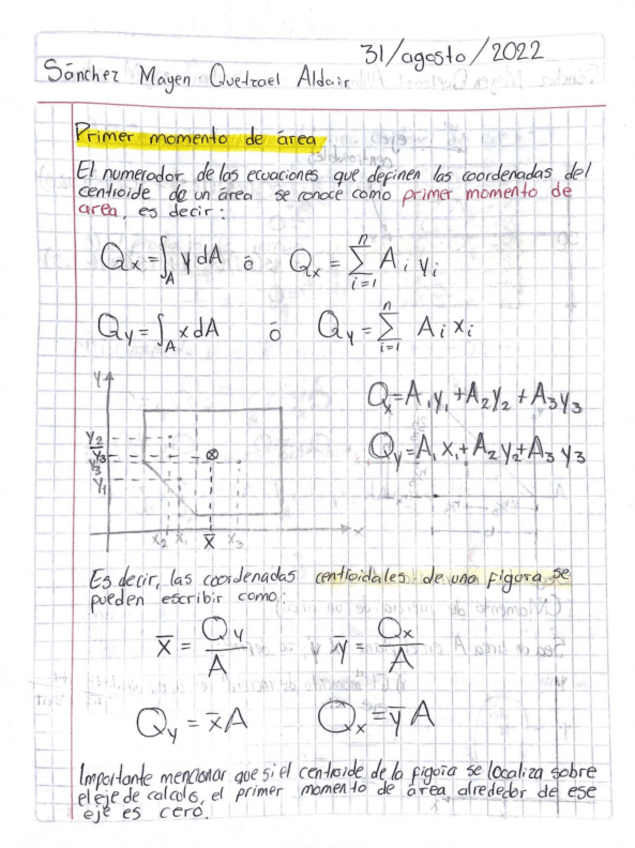 31/agosto/2022
Sánchez Mayen Quetzael Aldair
Primer momento de área
El numerador de las ecuaciones que definen las coordenadas del
centroide de un área se conoce como primer momento de
area, es decir:
Qx = ∫A y dA ó Qx = Σ i=1 n Ai yi
Qy = ∫A x dA ó Qy = Σ i=1 n Ai xi
Qx = A1y1 + A2y2 + A3y3
Qy = A1x1 + A2y2 + A3y3
y
y2
y3
y1
x2 x1 x̄ x3
x
Es decir, las coordenadas centroidales de una figura se
pueden escribir como:
x̄ = Qy/A ȳ = Qx/A
Qy = x̄A Qx = ȳA
Importante mencionar que si el centroide de la figura se localiza sobre
el eje de calculo, el primer momento de área alrededor de ese
eje es cero.